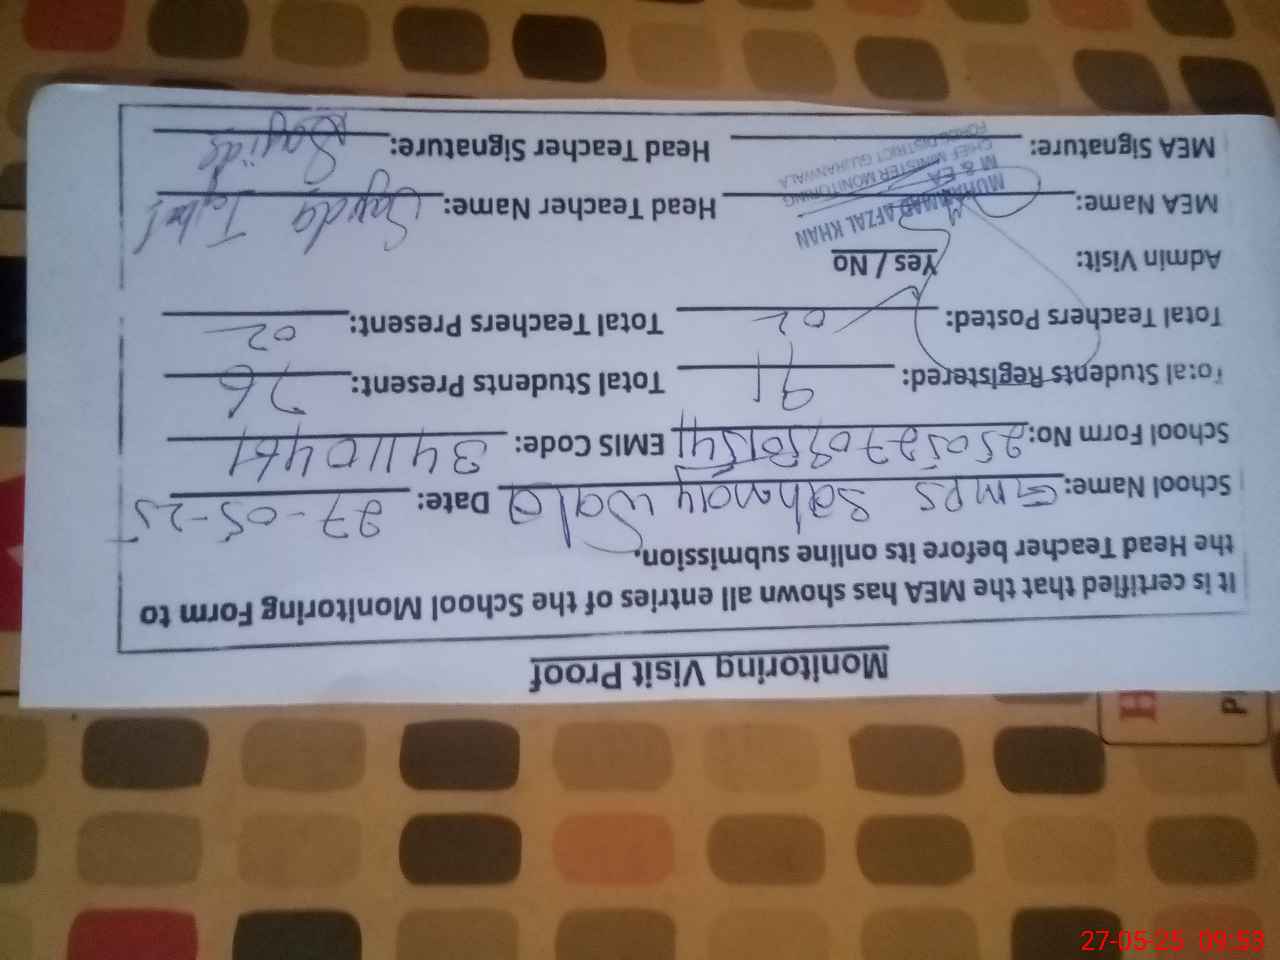 Monitoring Visit Proof
It is certified that the MEA has shown all entries of the School Monitoring Form to
the Head Teacher before its online submission.
School Name: GMPS Sahnay Wala Date: 27-05-25
School Form No: EMIS Code: 34110461
Total Students Registered: 91 Total Students Present: 76
Total Teachers Posted: 02 Total Teachers Present: 02
Admin Visit: Yes / No
MEA Name: Head Teacher Name: Sayda Iqbal
MEA Signature: Head Teacher Signature: Sayida
MUHAMMAD AFZAL KHAN
M & EA
CHIEF MINISTER MONITORING
FORCE DISTRICT GUJRANWALA
27-05-25 09:53